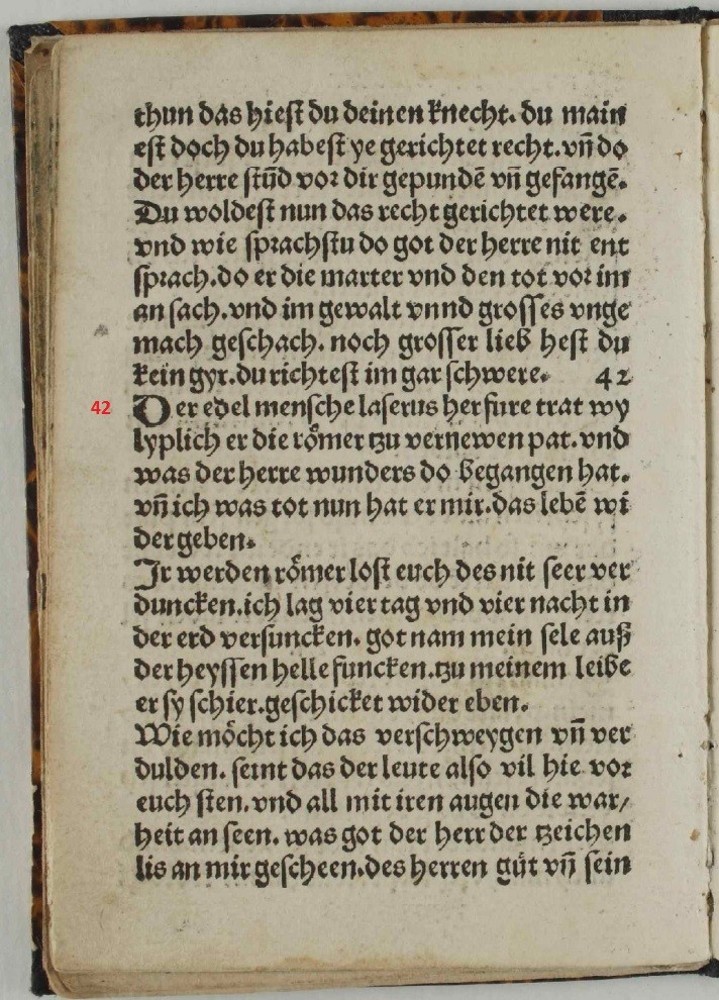 thun das hiest du deinen knecht. du main
est doch du habest ye gerichtet recht. vn̄ do
der herre stūd vor dir gepundē vn̄ gefangē.
Du woldest nun das recht gerichtet were.
vnd wie sprachstu do got der herre nit ent
sprach. do er die marter vnd den tot vor im
an sach. vnd im gewalt vnnd grosses vnge
mach geschach. noch grosser lieb hest du
kein gyr. du richtest im gar schwere. 42
42 Der edel mensche laserus herfure trat wy
lyplich er die roͤmer tzu vernewen pat. vnd
was der herre wunders do begangen hat.
vn̄ ich was tot nun hat er mir. das lebē wi
der geben.
Ir werden roͤmer lost euch des nit seer ver
duncken. ich lag vier tag vnd vier nacht in
der erd versuncken. got nam mein sele auß
der heyssen helle funcken. tzu meinem leibe
er sy schier. geschicket wider eben.
Wie moͤcht ich das verschweygen vn̄ ver
dulden. seint das der leute also vil hie vor
euch sten. vnd all mit iren augen die war/
heit an seen. was got der herr der tzeichen
lis an mir gescheen. des herren guͤt vn̄ sein